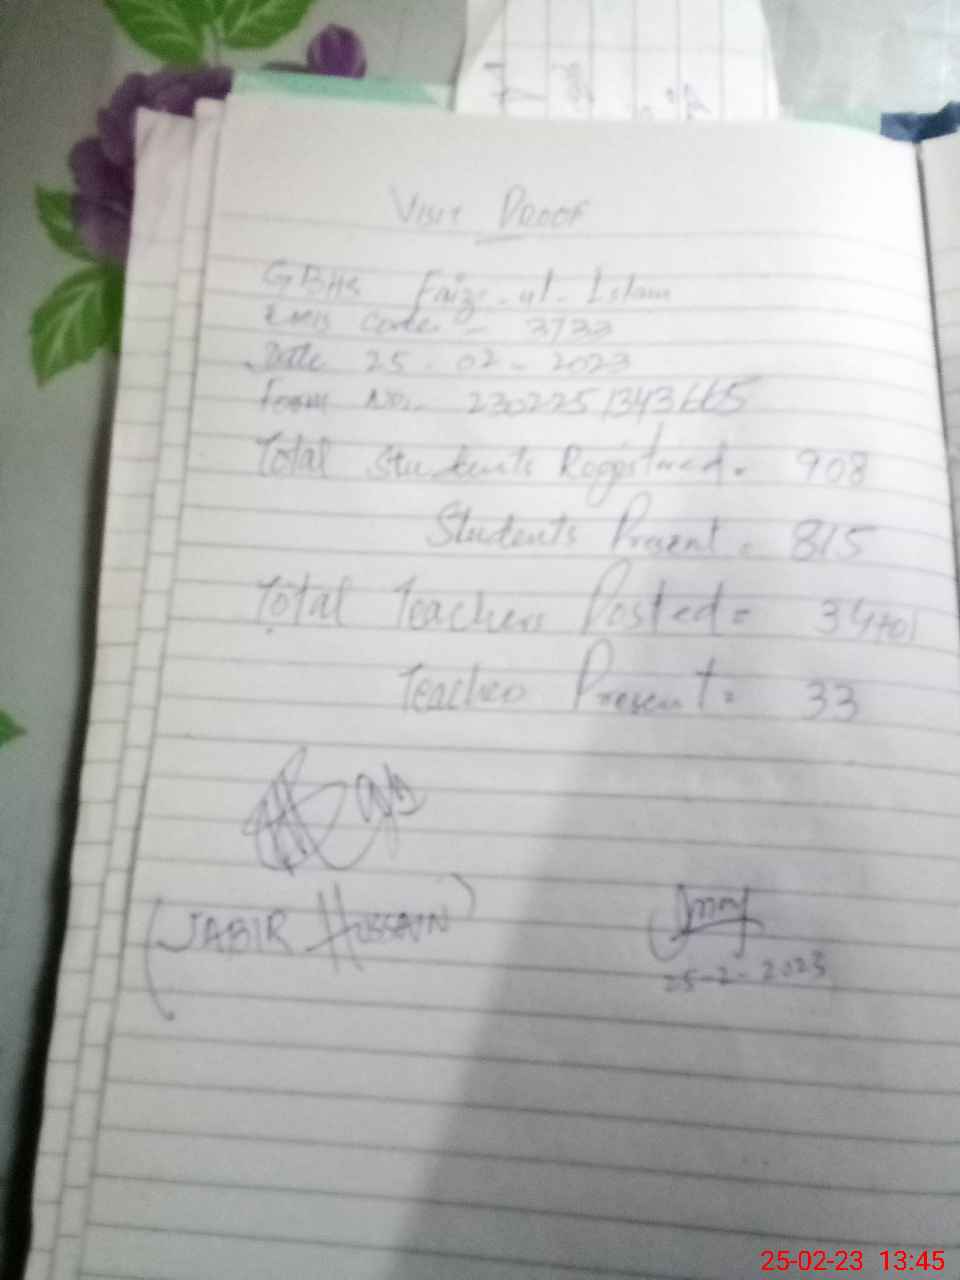 Visit Proof
GBHS Faiz-ul-Islam
Emis Code - 3733
Date 25-02-2023
Form No. 230225 1343665
Total Students Reggistered = 908
Students Present = 815
Total Teachers Posted = 34+01
Teachers Present = 33
(JABIR HUSSAIN)
25-2-2023
25-02-23 13:45